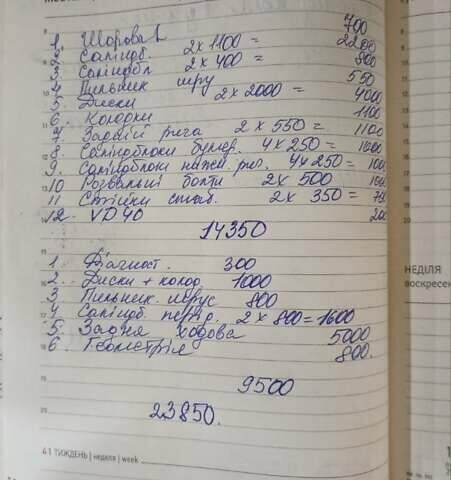 1 Шарова 1 700
2 Саліндб. 2 x 1100 = 2200
3 Саліндбл 2 x 400 = 800
4 Пильник шру 550
5 Диски 2 x 2000 = 4000
6 Колодки 1100
7 Задній рича 2 x 550 = 1100
8. Саліндблоки бумер. 4 x 250 = 1000
9. Саліндблоки нижн. рич. 4 x 250 = 100
10 Розвальні болти 2 x 500 100
11 Стійки стаб. 2 x 350 = 7
12. VD 40 20
14350
1. Діагност. 300
2. Диски + колод 1000
3 Пильник. шрус 800
4 Саліндб. перед. 2 x 800 = 1600
5. Задня ходова 5000
6. Геометрія 800.
9500
23850.
НЕДІЛЯ
воскресен
41 ТИЖДЕНЬ | неделя | week